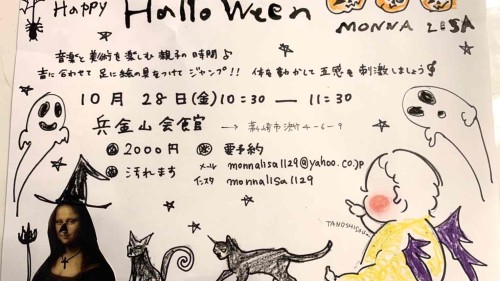 Happy Halloween
MONNA LISA
音楽と美術を楽しむ親子の時間♪
音に合わせて足に絵の具をつけてジャンプ!! 体を動かして五感を刺激しましょう
10月 28日(金)10:30 — 11:30
兵金山会館
→ 茅ヶ崎市
4-6-9
2000円
要予約
メール monnalisa1129@yahoo.co.jp
汚れます
インスタ monnalisa1129
TANOSHISOU〜